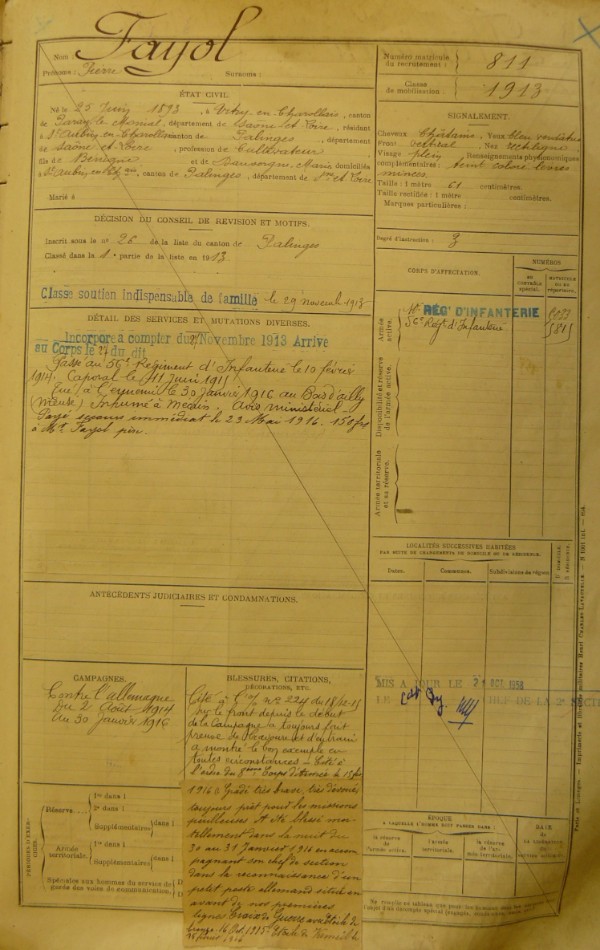 Nom : Fayol
Prénoms : Pierre Surnoms :
ÉTAT CIVIL.
Né le 25 Juin 1893, à Vitry en Charollais, canton
de Paray le Monial, département de Saône et Loire, résidant
à St Aubin en Charollais canton de Palinges, département
de Saône et Loire, profession de Cultivateur
fils de Bénigne et de Marie domiciliés
à St Aubin en canton de Palinges, département de Sne et Loire
Marié à
DÉCISION DU CONSEIL DE REVISION ET MOTIFS.
Inscrit sous le n° 26 de la liste du canton de Palinges
Classé dans la 1e partie de la liste en 1913
Classe soutien indispensable de famille le 29 novembre 1913
DÉTAIL DES SERVICES ET MUTATIONS DIVERSES.
Incorporé à compter du 27 Novembre 1913 Arrivé
au Corps le 27 du dit
Passé au 56e Régiment d'Infanterie le 10 février
1914. Caporal le 11 Juin 1915
Tué à l'ennemi le 30 Janvier 1916 au Bois d'ailly
(Meuse) Inhumé à Mecrin. Avis ministériel
Payé secours immédiat le 23 Mai 1916. 150 frs
à Mr Fayol père.
ANTÉCÉDENTS JUDICIAIRES ET CONDAMNATIONS.
CAMPAGNES.
Contre l'allemagne
Du 2 Août 1914
Au 30 Janvier 1916
BLESSURES, CITATIONS,
DÉCORATIONS, ETC.
Cité à l'O/ n° 224 du 18/12-15
Sur le front depuis le début
de la Campagne a toujours fait
preuve de bravoure et d'entrain
a montré le bon exemple en
toutes circonstances - Cité à
l'ordre du 8ème Corps d'Armée le 15 fév
1916 : Gradé très brave, très dévoué,
toujours prêt pour les missions
périlleuses. A été blessé mor-
tellement dans la nuit du
30 au 31 Janvier 1916 en accom
pagnant son chef de section
dans la reconnaissance d'un
petit poste allemand situé en
avant de nos premières
lignes. Croix de Guerre avec Etoile de
bronze. 1915. Etoile de Vermeil le
février 1916
Réserve
1re dans l
2e dans l
Supplémentaires
dans l
Armée
territoriale.
1re dans l
Supplémentaires
dans l
Spéciales aux hommes du service de
garde des voies de communication.
PÉRIODES D'EXER-
CICES.
Numéro matricule
du recrutement : 811
Classe
de mobilisation : 1913
SIGNALEMENT.
Cheveux Châtains, Yeux bleu verdâtre
Front vertical, Nez rectiligne
Visage plein Renseignements physionomiques
complémentaires : teint coloré lèvres
minces.
Taille : 1 mètre 61 centimètres.
Taille rectifiée : 1 mètre centimètres.
Marques particulières :
Degré d'instruction : 3
CORPS D'AFFECTATION.
NUMÉROS
au contrôle
spécial.
matricule
ou au
répertoire.
Armée
active.
RÉGt D'INFANTERIE
56e Régt d'Infanterie
Disponibilité et réserve
de l'armée active.
Armée territoriale
et sa réserve.
LOCALITÉS SUCCESSIVES HABITÉES
PAR SUITE DE CHANGEMENTS DE DOMICILE OU DE RÉSIDENCE.
Dates.
Communes.
Subdivisions de région
D. DOMICILE.
R. RÉSIDENCE.
MIS A JOUR LE OCT. 1958
ÉPOQUE
À LAQUELLE L'HOMME DOIT PASSER DANS :
la réserve
de l'armée active.
l'armée
territoriale.
la réserve
de l'armée territoriale.
DATE